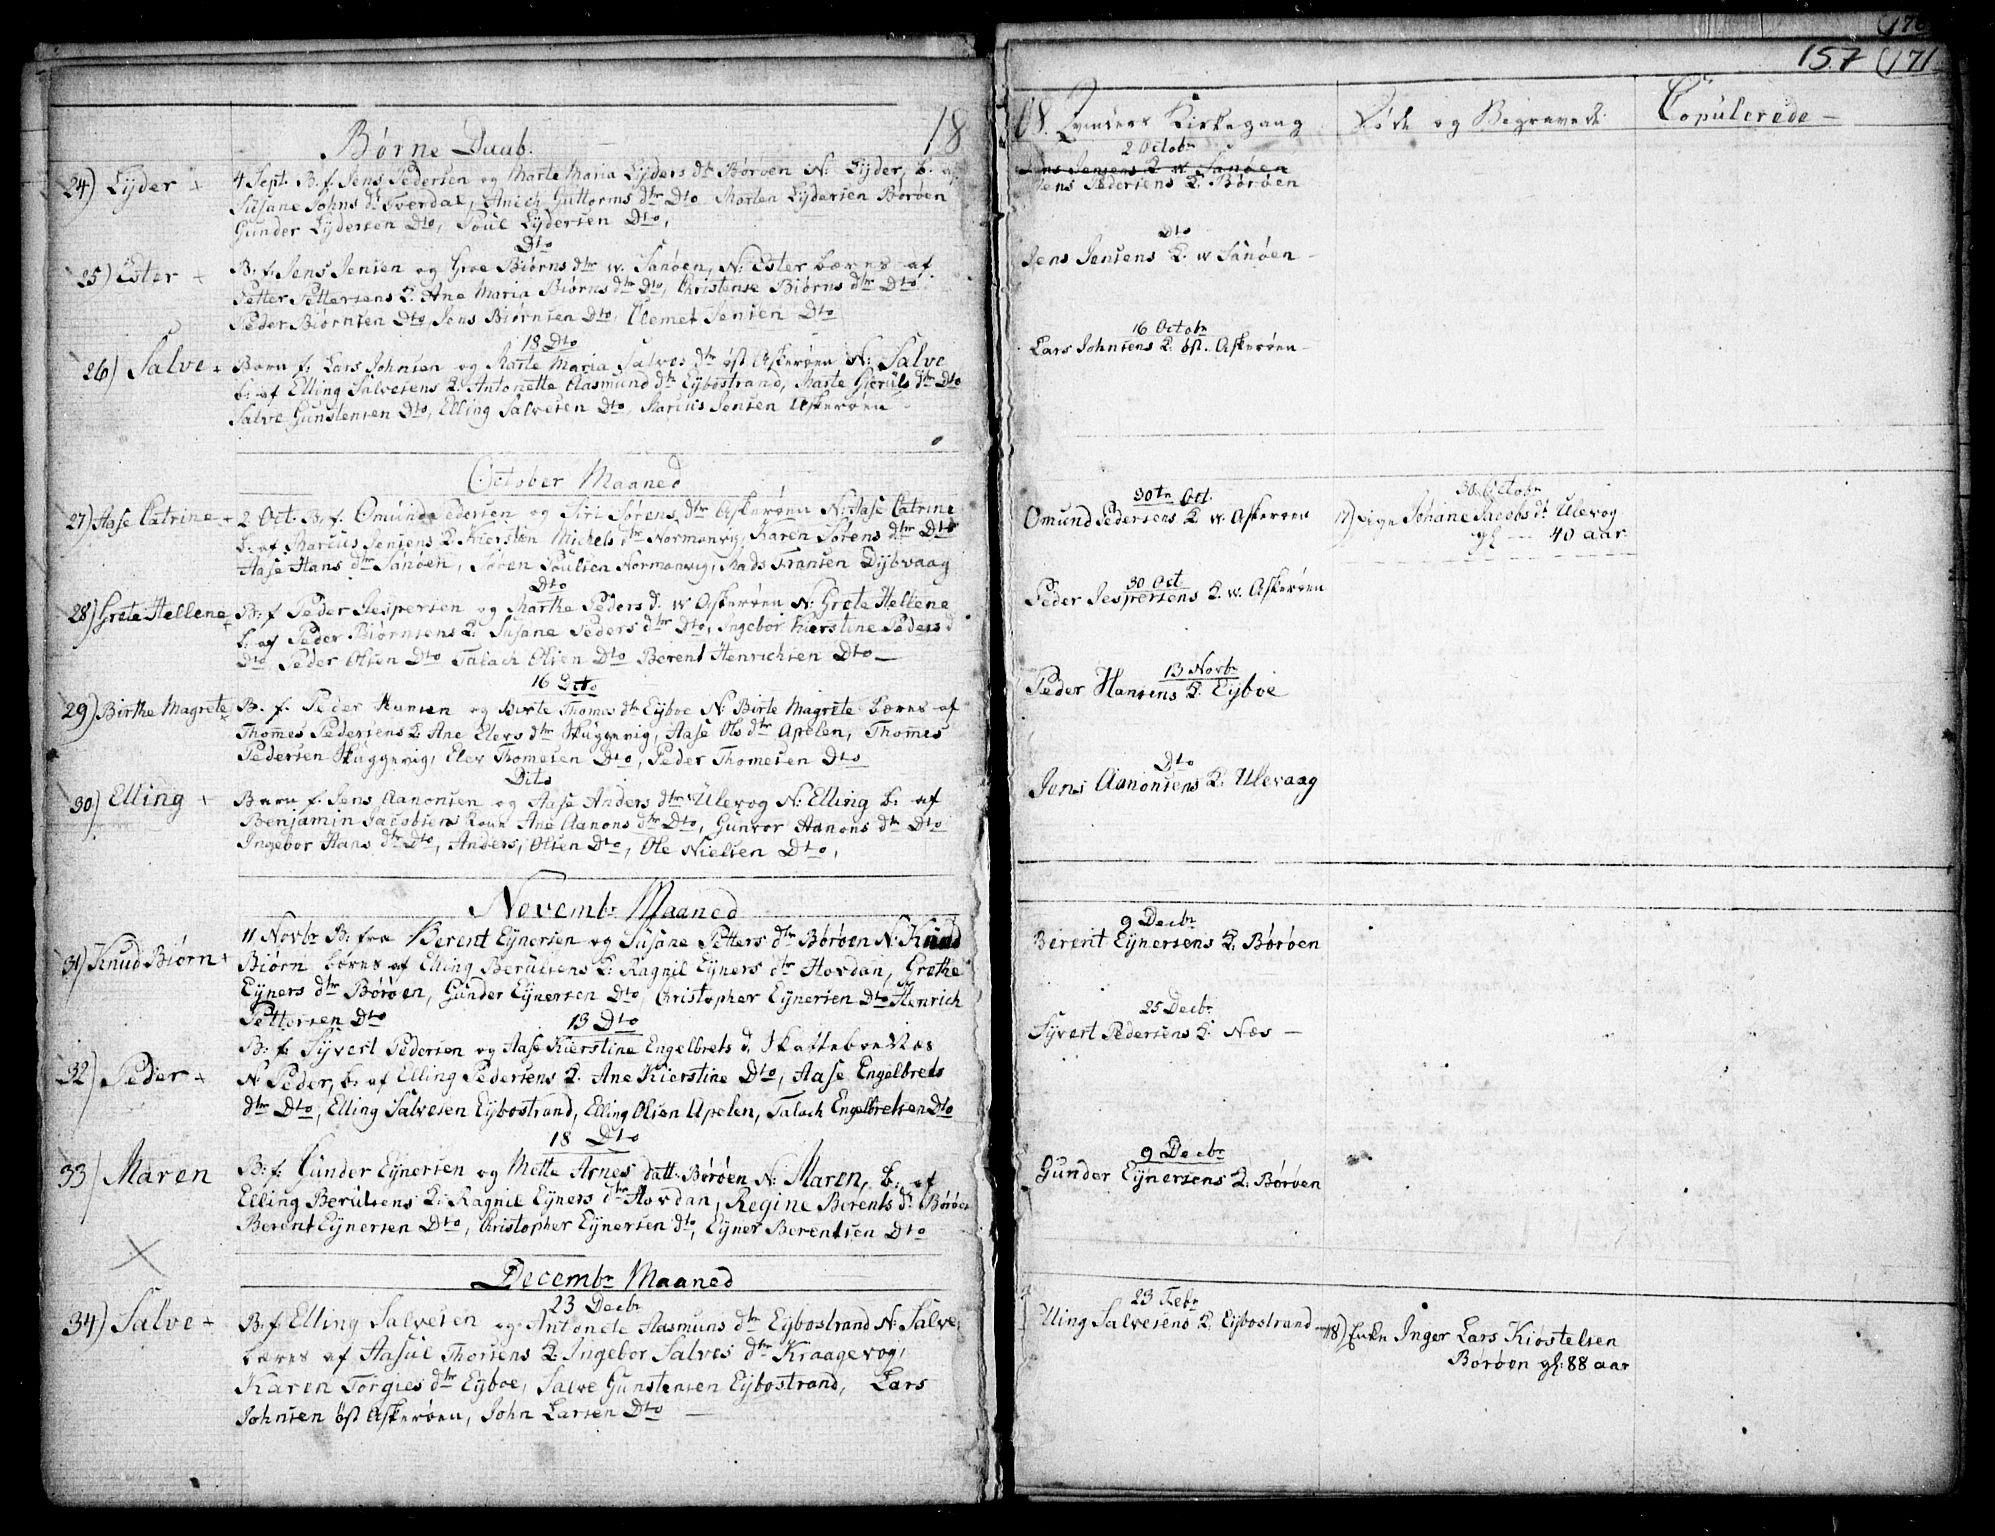 18
Børne Daab.
24) Lyder +
4 Sept. B. f. Jens Pedersen og Marte Maria Lyders dtr Børøen N: Lyder, b. af
Susane Johns dr Tverdal, Anich Guttorms dtr Dto Morten Lydersen Børøen
Gunder Lydersen Dto, Poul Lydersen Dto,
Dto
25) Ester +
B. f. Jens Jensen og Groe Biørns dtr w. Sanøen, N: Ester bæres af
Petter Pettersens K. Ane Maria Biørns dtr Dto, Christense Biørns dtr Dto
Peder Biørnsen Dto, Jens Biørnsen Dto, Clemet Jensen Dto
18 Dto
26) Salve +
Barn f. Lars Johnsen og Marte Maria Salves dtr öst Askerøen N: Salve
b. af Elling Salvesens K. Antonette Aasmund dtr Eybostrand, Marte Gieruls dtr Dto
Salve Gunstensen Dto, Elling Salvesen Dto, Marcus Jensen Askerøen
October Maaned
27) Aase Catrine +
2 Oct. B. f. Omund Pedersen og Siri Sørens dtr Askerøen N: Aase Catrine
b. af Marcus Jensens K. Kiersten Michels dtr Normanvig, Karen Sørens dtr Dto
Aase Hans dtr Sanøen, Søren Poulsen Normanvig, Mads Fransen Dybvaag
Dto
28) Grete Hellene +
B. f. Peder Jespersen og Marthe Peders d. w Askerøen N: Grete Hellene
b. af Peder Biørnsens K. Susane Peders dtr Dto, Ingebor Kierstine Peders d
Dto Peder Olsen Dto Talach Olsen Dto Berent Henrichsen Dto —
16 Dito
29) Birthe Magrete +
B. f. Peder Hansen og Berte Thomes dtr Eyboe N: Birte Magrete bæres af
Thomes Pedersens K Ane Elevs dtr Skuggevig, Aase Ols dtr Apelen, Thomes
Pedersen Skuggevig, Elev Thomesen Dto, Peder Thomesen Dto
Dito
30) Elling +
Barn f. Jens Aanonsen og Aase Anders dtr Ulevog N: Elling b. af
Benjamin Jacobsens Kone Ane Aanons dtr Dto, Gunvor Aanons dtr Dto
Ingebor Hans dtr Dto, Anders Olsen Dto, Ole Nielsen Dto,
Novembr Maaned
31) Knud Biørn +
11 Novbr B: fra Berent Eynersen og Susane Petters dtr Børøen N: Knud
Biørn bæres af Elling Berulsens K: Ragnil Eyners dtr Hovdan, Grethe
Eyners dtr Børøen, Gunder Eynersen Dto, Christopher Eynersen Dto Henrich
Pettersen Dto
13 Dto
32) Peder +
B: f. Syvert Pedersen og Aase Kierstine Engelbrets d. Skatteboe Næs
N: Peder, b. af Elling Pedersens K. Ane Kierstine Dto, Aase Engelbrets
dtr Dto, Elling Salvesen Eybostrand, Elling Olsen Apelen, Talach Engelbretsen Dto
18 Dto
33) Maren
B: f. Gunder Eynersen og Mette Arnes datt. Børøen N: Maren, b. af
Elling Berulsens K: Ragnil Eyners dtr Hovdan, Regine Berents dr Børøen
Berent Eynersen Dto, Christopher Eynersen dto, Eyner Berentsen Dto
Decembr Maaned
23 Decbr
34) Salve +
B: f Elling Salvesen og Antonete Aasmuns dtr Eybostrand N: Salve
bæres af Aasul Thorsens K: Ingebor Salves dtr Kraagevog,
Karen Torgies dtr Eyboe, Salve Gunstensen Eybostrand, Lars
Johnsen öst Askerøen, John Larsen Dto —
(170
157 (171
08. Qvinders Kirkegang
Døde og Begravede
Copulerede —
2 Octobr
Jens Jensens K w Sanøen
Jens Pedersens K. Børøen
Dto
Jens Jensens K. w Sanøen
16 Octobr
Lars Johnsens K. öst. Askerøen
30te Oct.
Omund Pedersens K w. Askerøen
30 Octobr
17) Pige Johane Jacobs dr Ulevog
gl — 40 aar
30 Oct
Peder Jespersens K. w. Askerøen
13 Novbr
Peder Hansens K. Eyboe
Dto
Jens Aanonsens K. Ulevaag
9 Decbr
Berent Eynersens K. Børøen
25 Decbr
Syvert Pedersens K. Næs —
9 Decbr
Gunder Eynersens K. Børøen
23 Febr
Elling Salvesens K. Eybostrand
18) Enken Inger Lars Kiøstelsen
Børøen gl: 88 aar